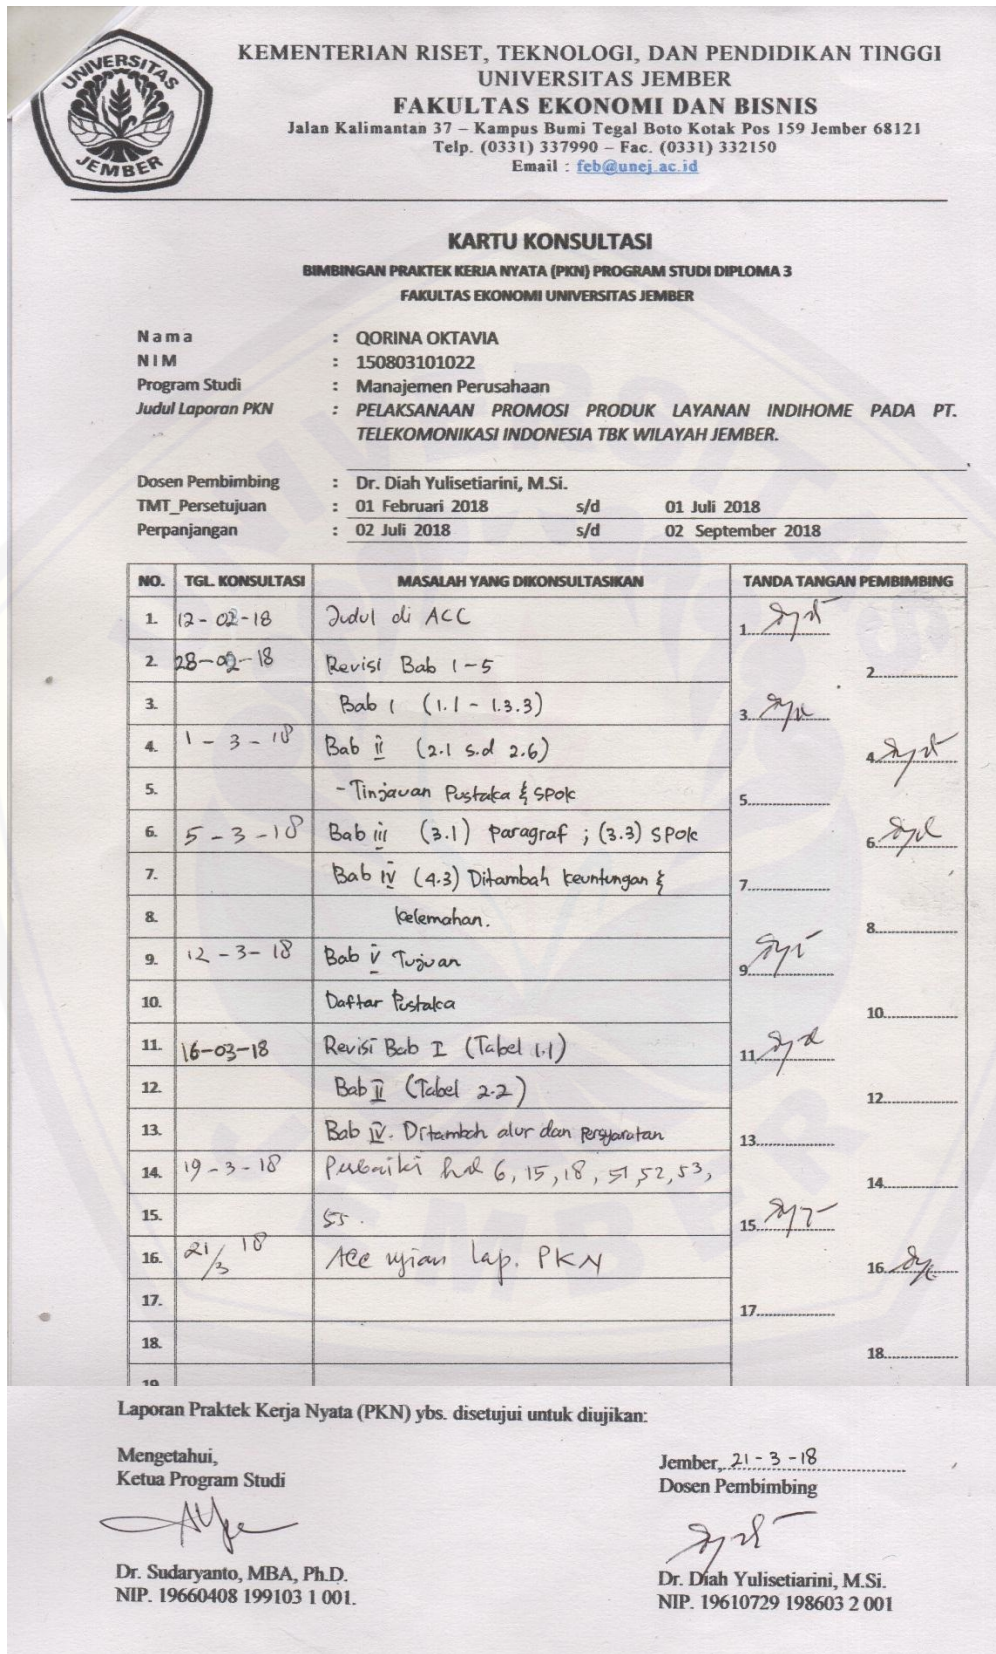 UNIVERSITAS
JEMBER
KEMENTERIAN RISET, TEKNOLOGI, DAN PENDIDIKAN TINGGI
UNIVERSITAS JEMBER
FAKULTAS EKONOMI DAN BISNIS
Jalan Kalimantan 37 – Kampus Bumi Tegal Boto Kotak Pos 159 Jember 68121
Telp. (0331) 337990 – Fac. (0331) 332150
Email : feb@unej.ac.id
KARTU KONSULTASI
BIMBINGAN PRAKTEK KERJA NYATA (PKN) PROGRAM STUDI DIPLOMA 3
FAKULTAS EKONOMI UNIVERSITAS JEMBER
Nama : QORINA OKTAVIA
NIM : 150803101022
Program Studi : Manajemen Perusahaan
Judul Laporan PKN : PELAKSANAAN PROMOSI PRODUK LAYANAN INDIHOME PADA PT.
TELEKOMONIKASI INDONESIA TBK WILAYAH JEMBER.
Dosen Pembimbing : Dr. Diah Yulisetiarini, M.Si.
TMT_Persetujuan : 01 Februari 2018 s/d 01 Juli 2018
Perpanjangan : 02 Juli 2018 s/d 02 September 2018
NO. TGL. KONSULTASI MASALAH YANG DIKONSULTASIKAN TANDA TANGAN PEMBIMBING
1. 12-02-18 Judul di ACC 1.
2. 28-02-18 Revisi Bab 1-5 2.
3. Bab I (1.1 - 1.3.3) 3.
4. 1-3-18 Bab II (2.1 s.d 2.6) 4.
5. - Tinjauan Pustaka & SPOK 5.
6. 5-3-18 Bab III (3.1) Paragraf ; (3.3) SPOK 6.
7. Bab IV (4.3) Ditambah keuntungan & 7.
8. kelemahan. 8.
9. 12-3-18 Bab V Tujuan 9.
10. Daftar Pustaka 10.
11. 16-03-18 Revisi Bab I (Tabel 1.1) 11.
12. Bab II (Tabel 2.2) 12.
13. Bab IV. Ditambah alur dan persyaratan 13.
14. 19-3-18 Perbaiki hal 6, 15, 18, 51, 52, 53, 14.
15. 55. 15.
16. 21/3 18 Acc ujian lap. PKN 16.
17. 17.
18. 18.
19.
Laporan Praktek Kerja Nyata (PKN) ybs. disetujui untuk diujikan:
Mengetahui,
Ketua Program Studi
Jember, 21-3-18
Dosen Pembimbing
Dr. Sudaryanto, MBA, Ph.D.
NIP. 19660408 199103 1 001.
Dr. Diah Yulisetiarini, M.Si.
NIP. 19610729 198603 2 001